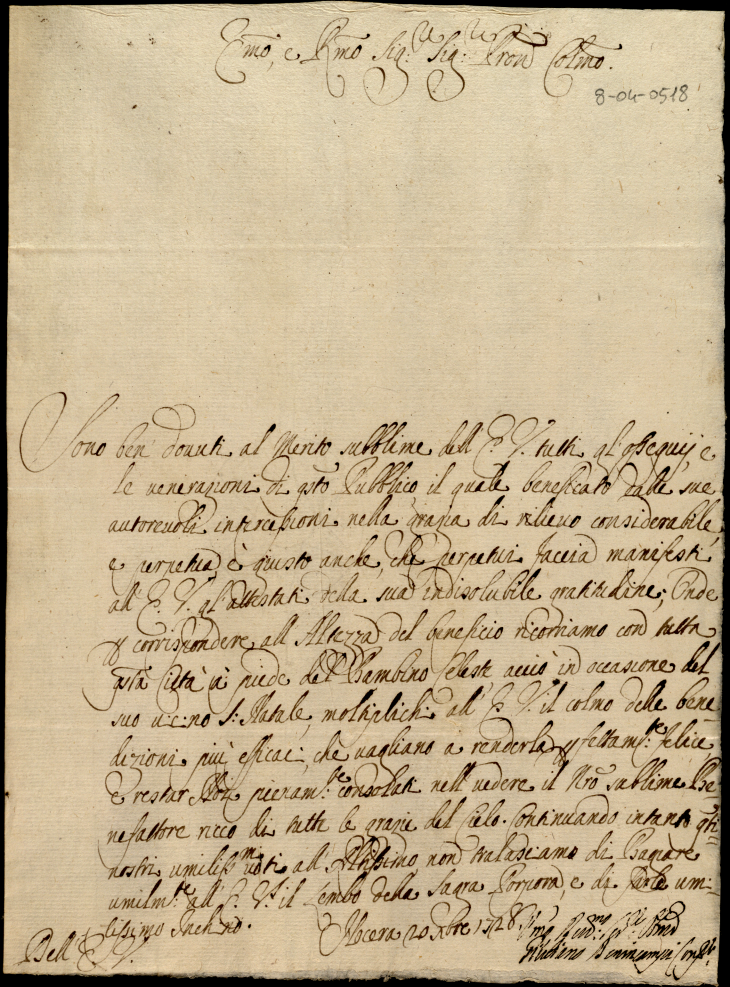 Emo, e Rmo Sig:r Sig:r Pron Colmo.
8-04-0518
Sono ben' dovuti al Merito subblime dell' E. V. tutti gl'ossequij e
le venerazioni di qsto Pubblico, il quale beneficato dalle sue
autorevoli intercessioni nella grazia di rilievo considerabile,
e perpetua, è giusto anche, che perpetui faccia manifesti
all' E. V. gl'attestati della sua indisolubile gratitudine; Onde
p corrispondere all' Altezza del beneficio ricorriamo con tutta
qsta Città à piede del Bambino Celeste acciò in occasione del
suo vicino S: Natale, moltiplichi all' E. V. il colmo delle bene=
dizioni più efficaci, che vagliano a renderla pfettam:te felice,
E restar Noi pienam:te consolati nell' vedere il Nro sublime Be=
nefattore ricco di tutte le grazie del Cielo. Continuando intanto qti
nostri umiliss:mi voti all' Altissimo non tralasciamo di Bagiare
umilm:te all' E. V. il Lembo della Sagra Porpora, e di farle um:
lissimo Inchino. Nocera 20 Xbre 1728.
Dell' E. V.